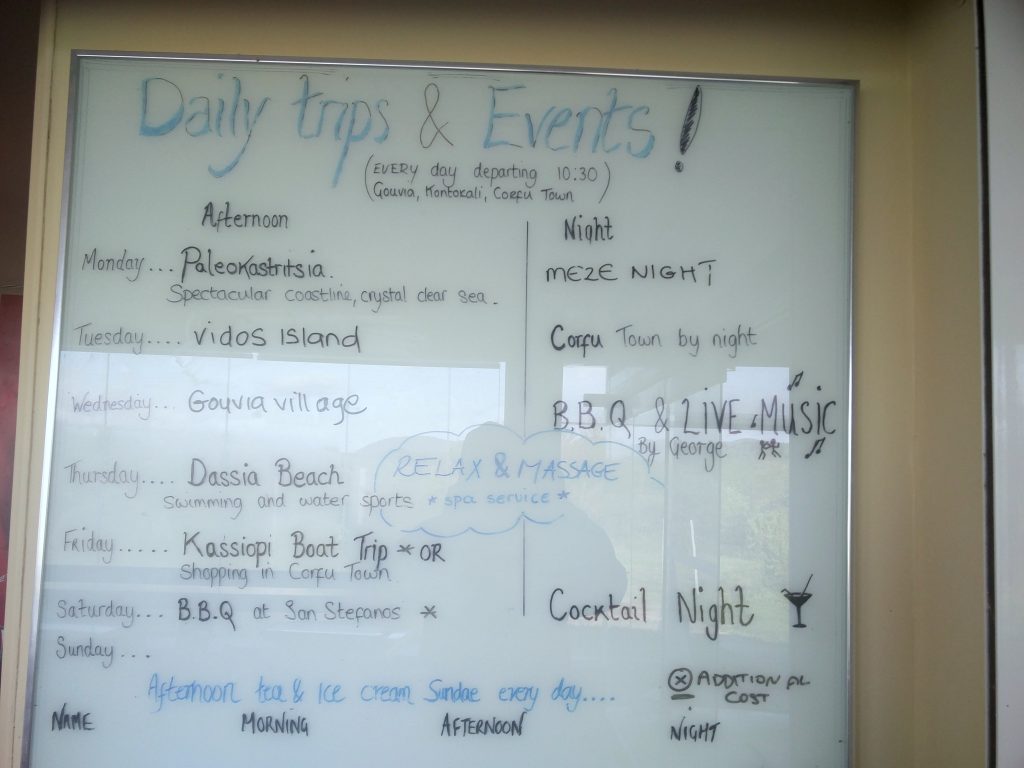 Daily trips & Events!
(EVERY day departing 10:30)
Gouvia, Kontokali, Corfu Town
Afternoon
Night
Monday... Paleokastritsia.
MEZE NIGHT
Spectacular coastline, crystal clear sea.
Tuesday.... Vidos Island
Corfu Town by night
Wednesday... Gouvia village
B.B.Q & LIVE MUSIC
By George
RELAX & MASSAGE
* spa service *
Thursday.... Dassia Beach
Swimming and water sports
Friday...... Kassiopi Boat Trip * OR
Shopping in Corfu Town
Saturday.... B.B.Q at San Stefanos *
Cocktail Night
Sunday...
Afternoon tea & Ice cream Sundae every day....
* ADDITIONAL
COST
NAME MORNING AFTERNOON NIGHT